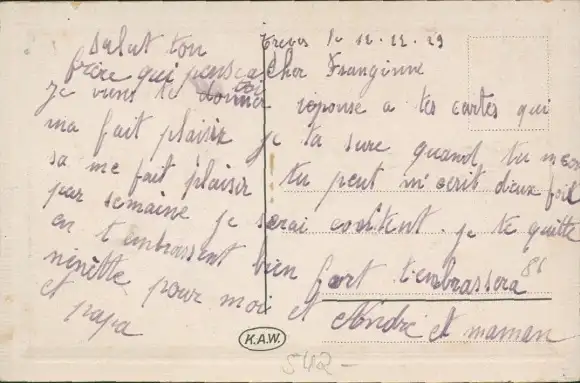 Treves le 12-12-29
Cher Franginne
je viens te donner reponse a tes cartes qui
ma fait plaisir je ta sure quand tu
sa me fait plaisir tu peut m'ecrit deux fois
par semaine je serai contient. je te quitte
en t'embrassent bien fort t'embrassera
ninètte pour moi et André et maman
et papa
salut ton
frère qui pense a
toi
86
K.A.W.
542-